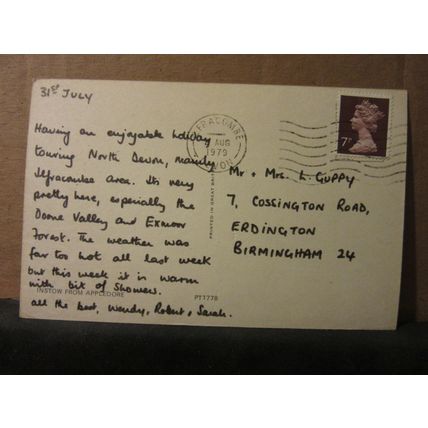 31st JULY
Having an enjoyable holiday
touring North Devon, mainly
Ilfracombe area. Its very
pretty here, especially the
Doone Valley and Exmoor
Forest. The weather was
far too hot all last week
but this week it is warm
with bit of showers.
all the best, Wendy, Robert & Sarah.
INSTOW FROM APPLEDORE
PT1778
PRINTED IN GREAT
FRACOMBE
AUG
1979
DEVON
7P
Mr & Mrs. L. GUPPY
7, COSSINGTON ROAD,
ERDINGTON
BIRMINGHAM 24